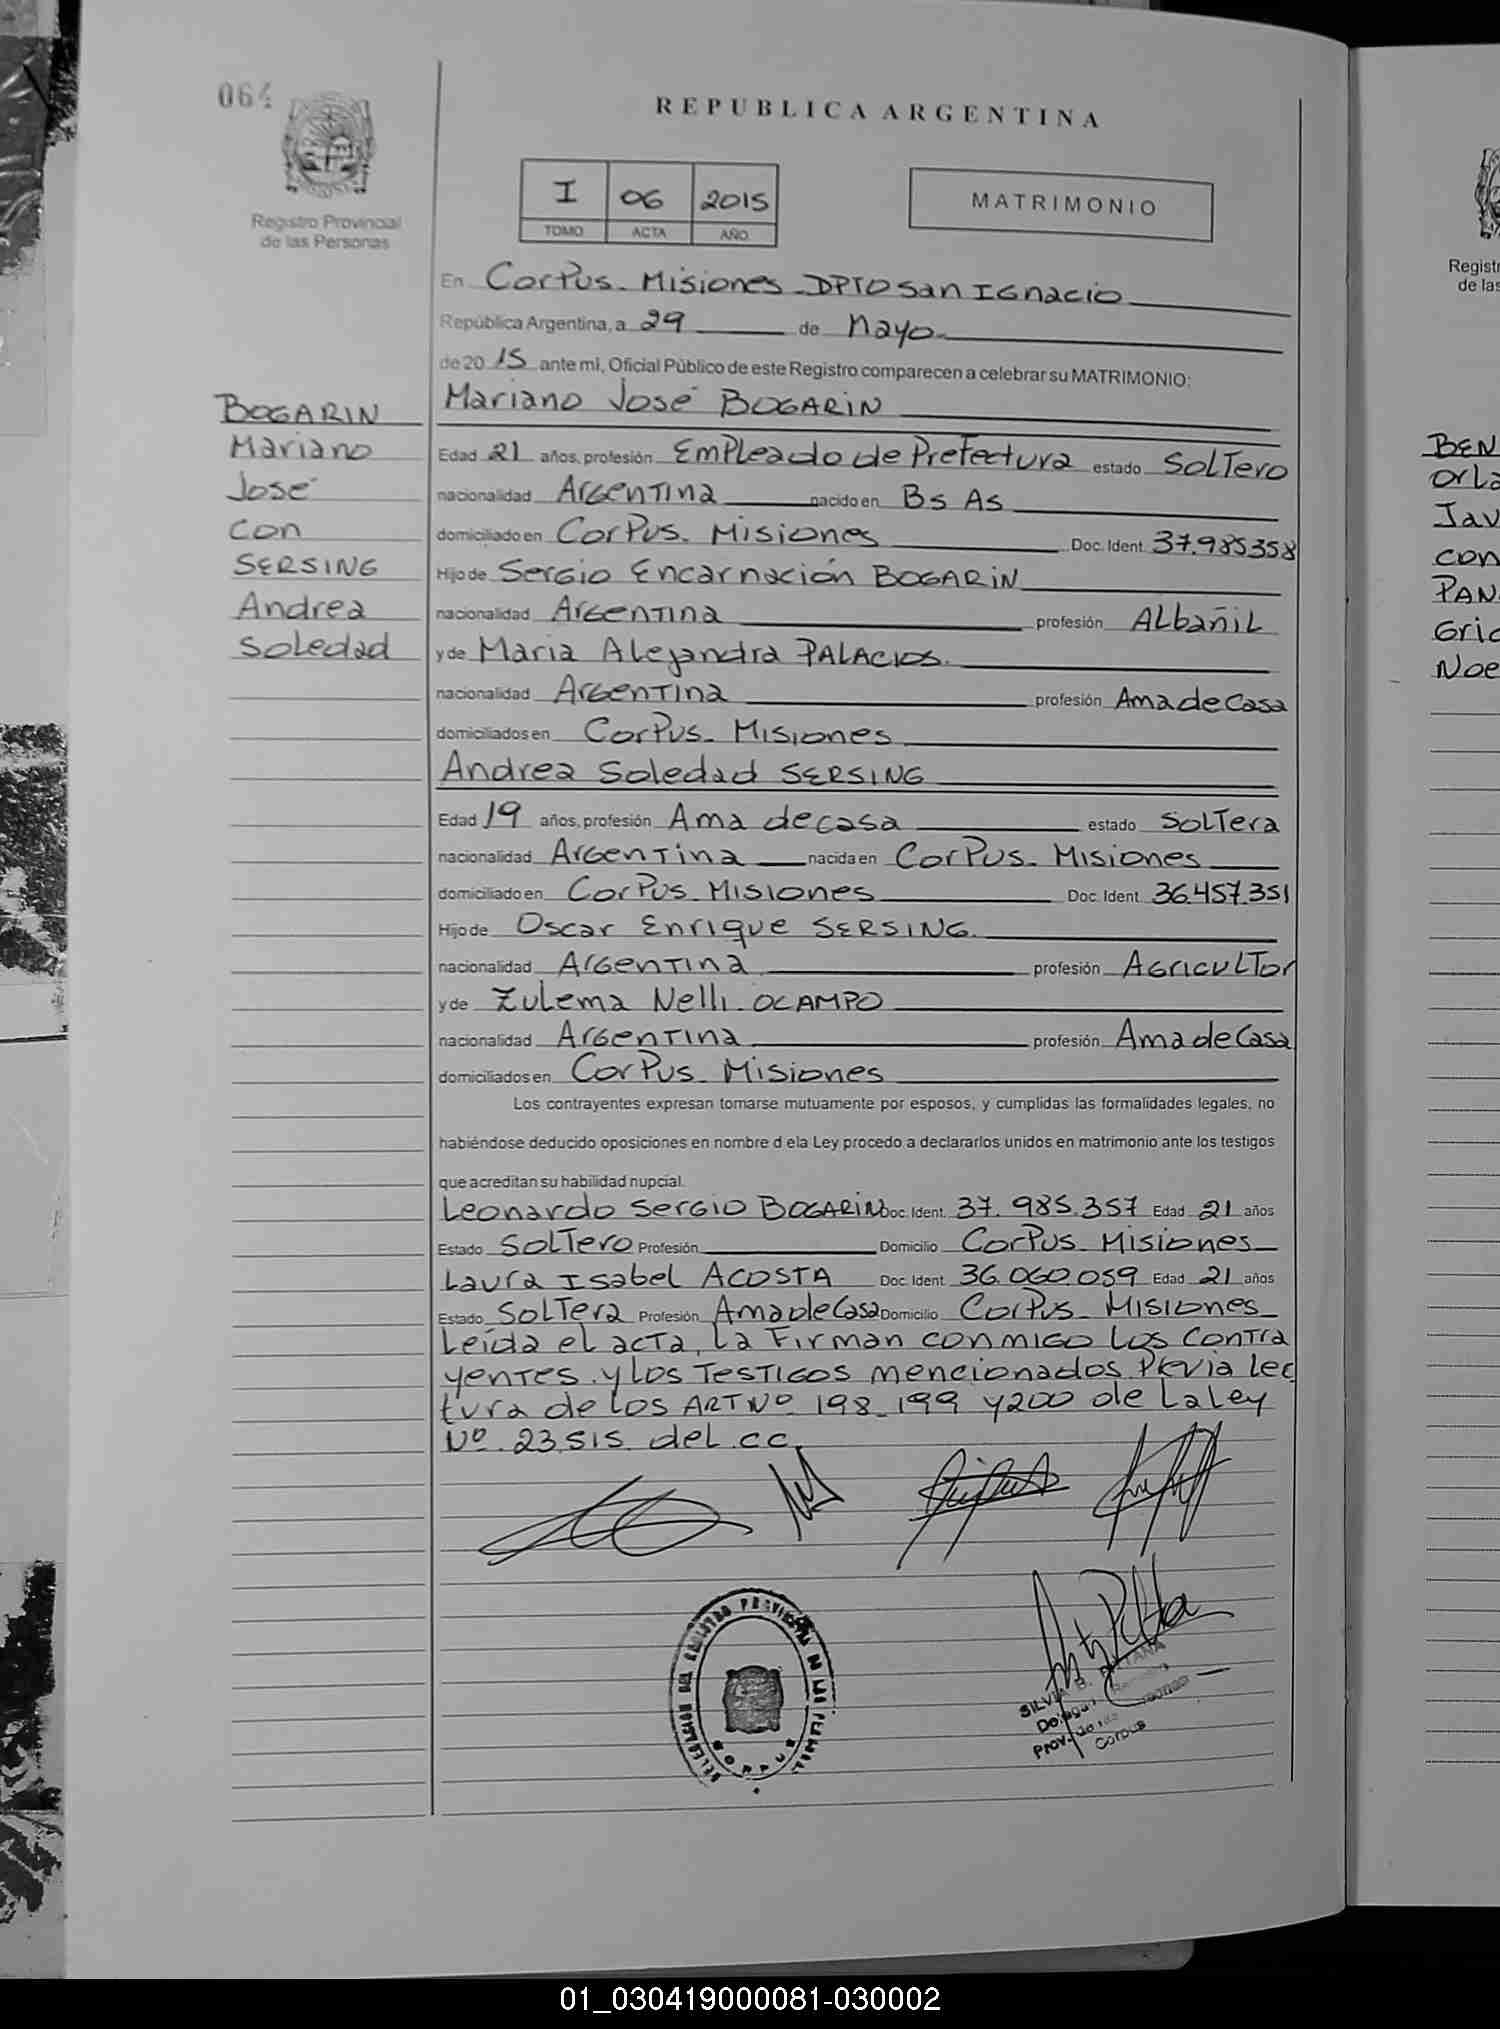 064
Registro Provincial
de las Personas
REPUBLICA ARGENTINA
I 06 2015
TOMO ACTA AÑO
MATRIMONIO
BOGARIN
Mariano
José
con
SERSING
Andrea
Soledad
En Corpus. Misiones. DPTO San Ignacio
República Argentina, a 29 de Mayo
de 20 15 ante mi, Oficial Público de este Registro comparecen a celebrar su MATRIMONIO:
Mariano José BOGARIN
Edad 21 años, profesión Empleado de Prefectura estado Soltero
nacionalidad Argentina nacido en Bs As
domiciliado en Corpus. Misiones Doc. Ident. 37.985358
Hijo de Sergio Encarnación BOGARIN
nacionalidad Argentina profesión Albañil
y de Maria Alejandra PALACIOS.
nacionalidad Argentina profesión Ama de Casa
domiciliados en Corpus. Misiones
Andrea Soledad SERSING
Edad 19 años, profesión Ama de casa estado Soltera
nacionalidad Argentina nacida en Corpus. Misiones
domiciliado en Corpus. Misiones Doc. Ident. 36.457.351
Hijo de Oscar Enrique SERSING.
nacionalidad Argentina profesión Agricultor
y de Zulema Nelli. OCAMPO
nacionalidad Argentina profesión Ama de Casa
domiciliados en Corpus. Misiones
Los contrayentes expresan tomarse mutuamente por esposos, y cumplidas las formalidades legales, no
habiéndose deducido oposiciones en nombre d ela Ley procedo a declararlos unidos en matrimonio ante los testigos
que acreditan su habilidad nupcial.
Leonardo Sergio BOGARIN Doc. Ident. 37.985.357 Edad 21 años
Estado Soltero Profesión Domicilio Corpus. Misiones
Laura Isabel ACOSTA Doc. Ident. 36.060.059 Edad 21 años
Estado Soltera Profesión Ama de Casa Domicilio Corpus. Misiones
Leída el acta, la Firman conmigo los contra
yentes. y los Testigos mencionados. Previa lec
tura de los ART Nº 198_199 y 200 de La Ley
Nº. 23.515 del. CC.
DELEGACION DEL REGISTRO PROVINCIAL
CORPUS
SILVIA B.
Corpus
Regist
de las
BEN
Orla
Jav
con
PAN
Gric
Noe
01_030419000081-030002